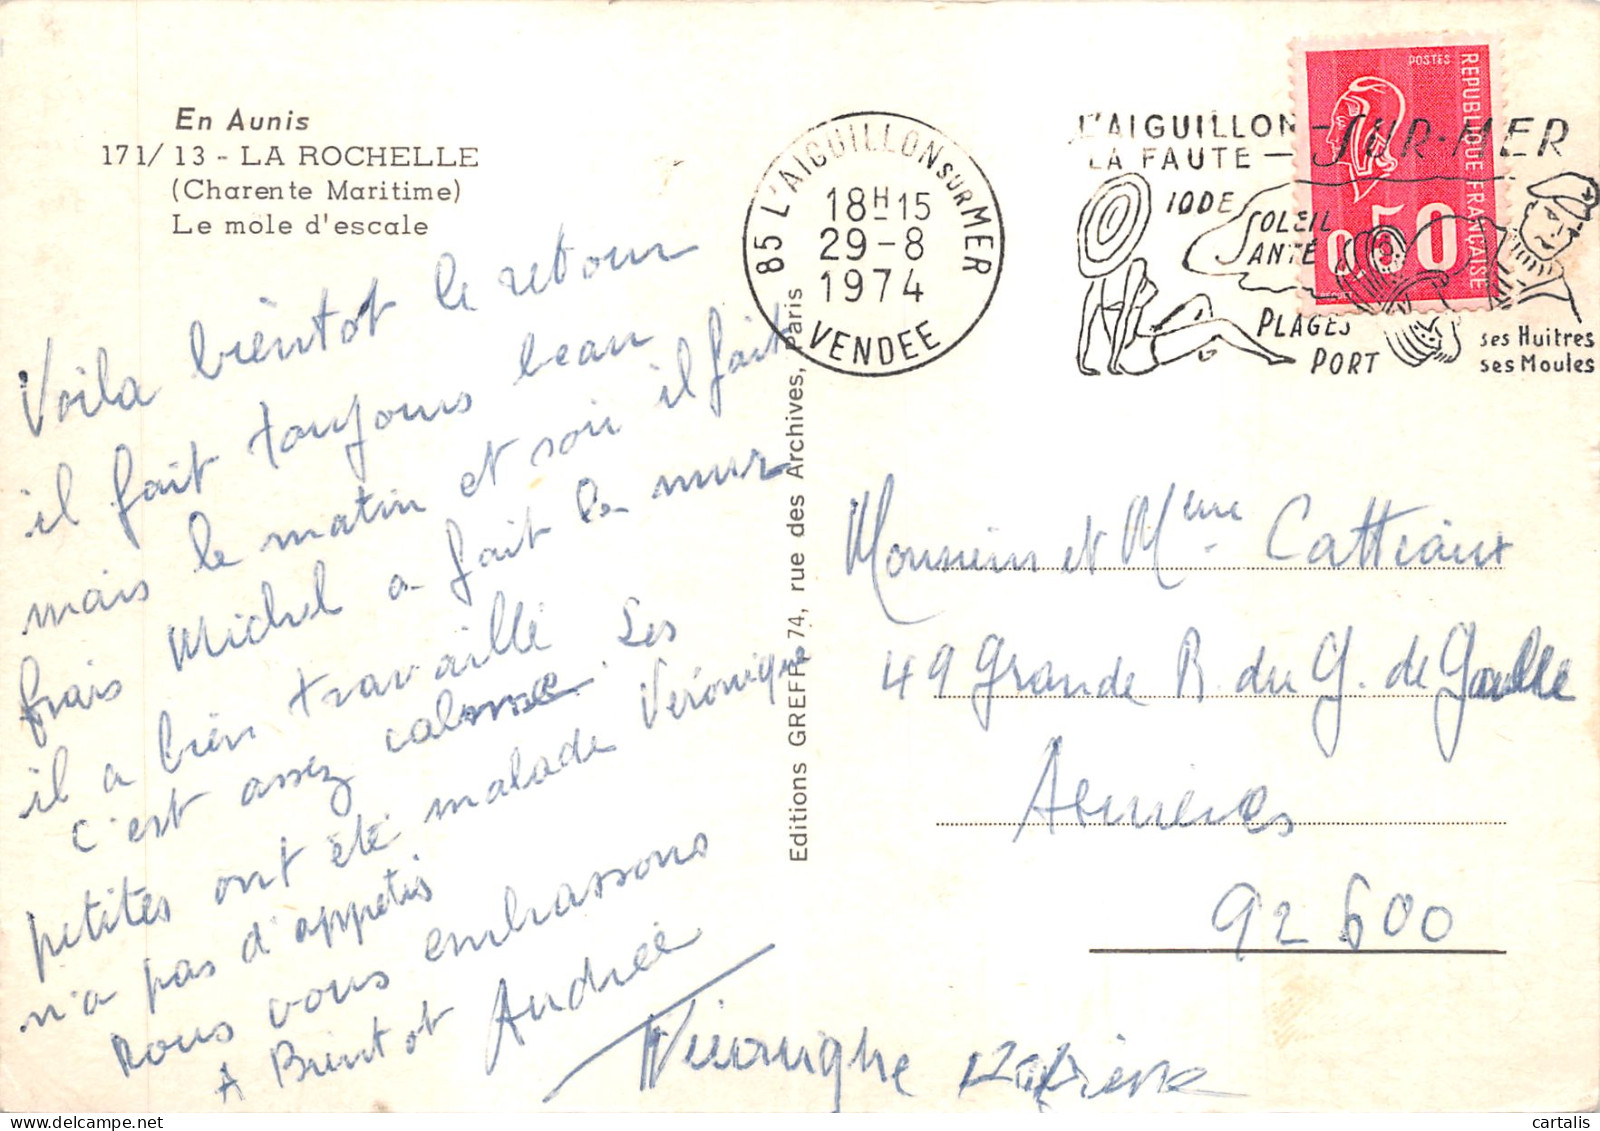 En Aunis
171/ 13 - LA ROCHELLE
(Charente Maritime)
Le môle d'escale
Voila bientot le retour
il fait toujours beau
mais le matin et soir il fait
frais Michel a fait le mur
il a bien travaillé
c'est assez calme. Les
petites ont été malade Véronique
n'a pas d'appetis
nous vous embrassons
A Bientot Andrée
Véronique
Editions GREFF, 74, rue des Archives, Paris
85 L'AIGUILLON SUR MER
18H15
29-8
1974
VENDEE
L'AIGUILLON-SUR-MER
LA FAUTE -
IODE
SOLEIL
SANTÉ
PLAGES
PORT
ses Huitres
ses Moules
POSTES
REPUBLIQUE FRANÇAISE
0,50
Monsieur et Mme Cattiaux
49 Grande R. du G. de Gaulle
Asnieres
92600
cartalis
delcampe.net